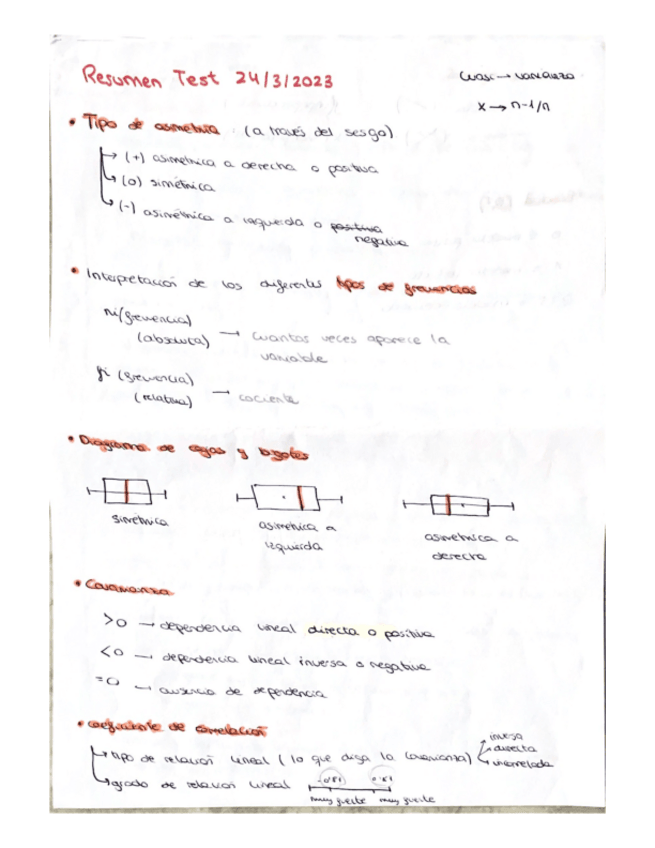 Resumen Test 24/3/2023
Cuasi → varianza
x → n-1/n
• Tipo de asimetría (a través del sesgo)
(+) asimétrica a derecha o positiva
(0) simétrica
(-) asimétrica a izquierda o positiva
negativa
• Interpretación de los diferentes tipos de frecuencias
ni (frecuencia)
(absoluta) → cuantas veces aparece la
variable
fi (frecuencia)
(relativa) → cociente
• Diagrama de cajas y bigotes
simétrica
asimétrica a
izquierda
asimétrica a
derecha
• Covarianza
>0 → dependencia lineal directa o positiva
<0 → dependencia lineal inversa o negativa
=0 → ausencia de dependencia
• coeficiente de correlación
→ tipo de relación lineal (lo que diga la covarianza)
inversa
directa
incorrelada
→ grado de relación lineal
muy fuerte muy fuerte